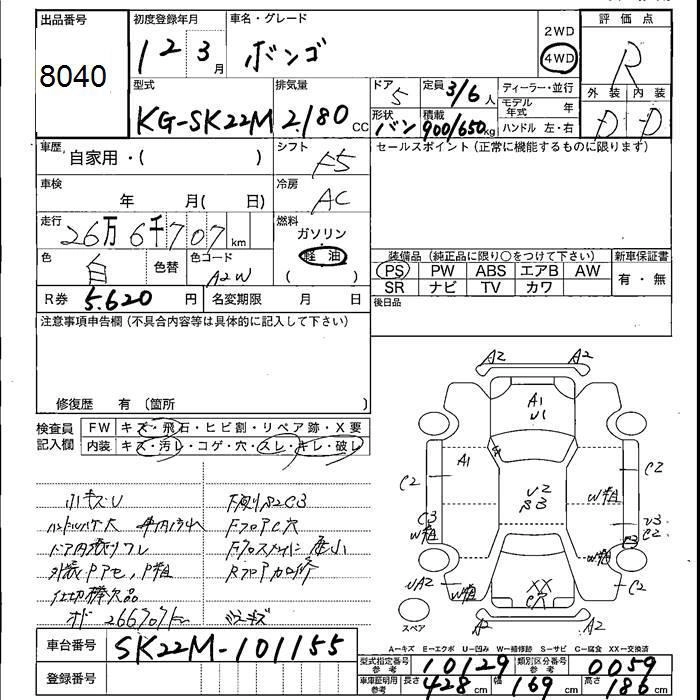 出品番号 初度登録年月 車名・グレード 評価点
8040 12 3月 ボンゴ 2WD 4WD R
外装 内装
型式 排気量 ドア 定員 ディーラー・並行
KG-SK22M 2180 CC 5 3/6人 モデル年式 年 D D
形状 バン 積載 900/650kg ハンドル 左・右
車歴 自家用・( ) シフト F5 セールスポイント(正常に機能するものに限ります)
車検 年 月( 日) 冷房 AC
走行 26万6千707km 燃料 ガソリン
軽油
( )
色 白 色替 色コード A2W
装備品(純正品に限り○をつけて下さい) 新車保証書
PS PW ABS エアB AW 有・無
SR ナビ TV カワ
R券 5.620円 名変期限 月 日 後日品
注意事項申告欄(不具合内容等は具体的に記入して下さい)
修復歴 有〔箇所 〕
検査員記入欄 FW キズ・飛石・ヒビ割・リペア跡・X要
内装 キズ・汚レ・コゲ・穴・スレ・キレ・破レ
小キズU
外装Pアセ、P粗
仕切棒欠品
A2 A2
A1
U1
A1
C2 U2 C2
C3 W粗
W粗 U3
C2
W粗
UA2 XX C2
W粗 C穴
A2 A2
スペア
A-キズ E-エクボ U-凹み W-補修跡 S-サビ C-腐食 XX-交換済
車台番号 SK22M-101155
登録番号
型式指定番号 参考 10129 類別区分番号 参考 0059
車庫証明用 参考 長さ 428cm 幅 169cm 高さ 186cm